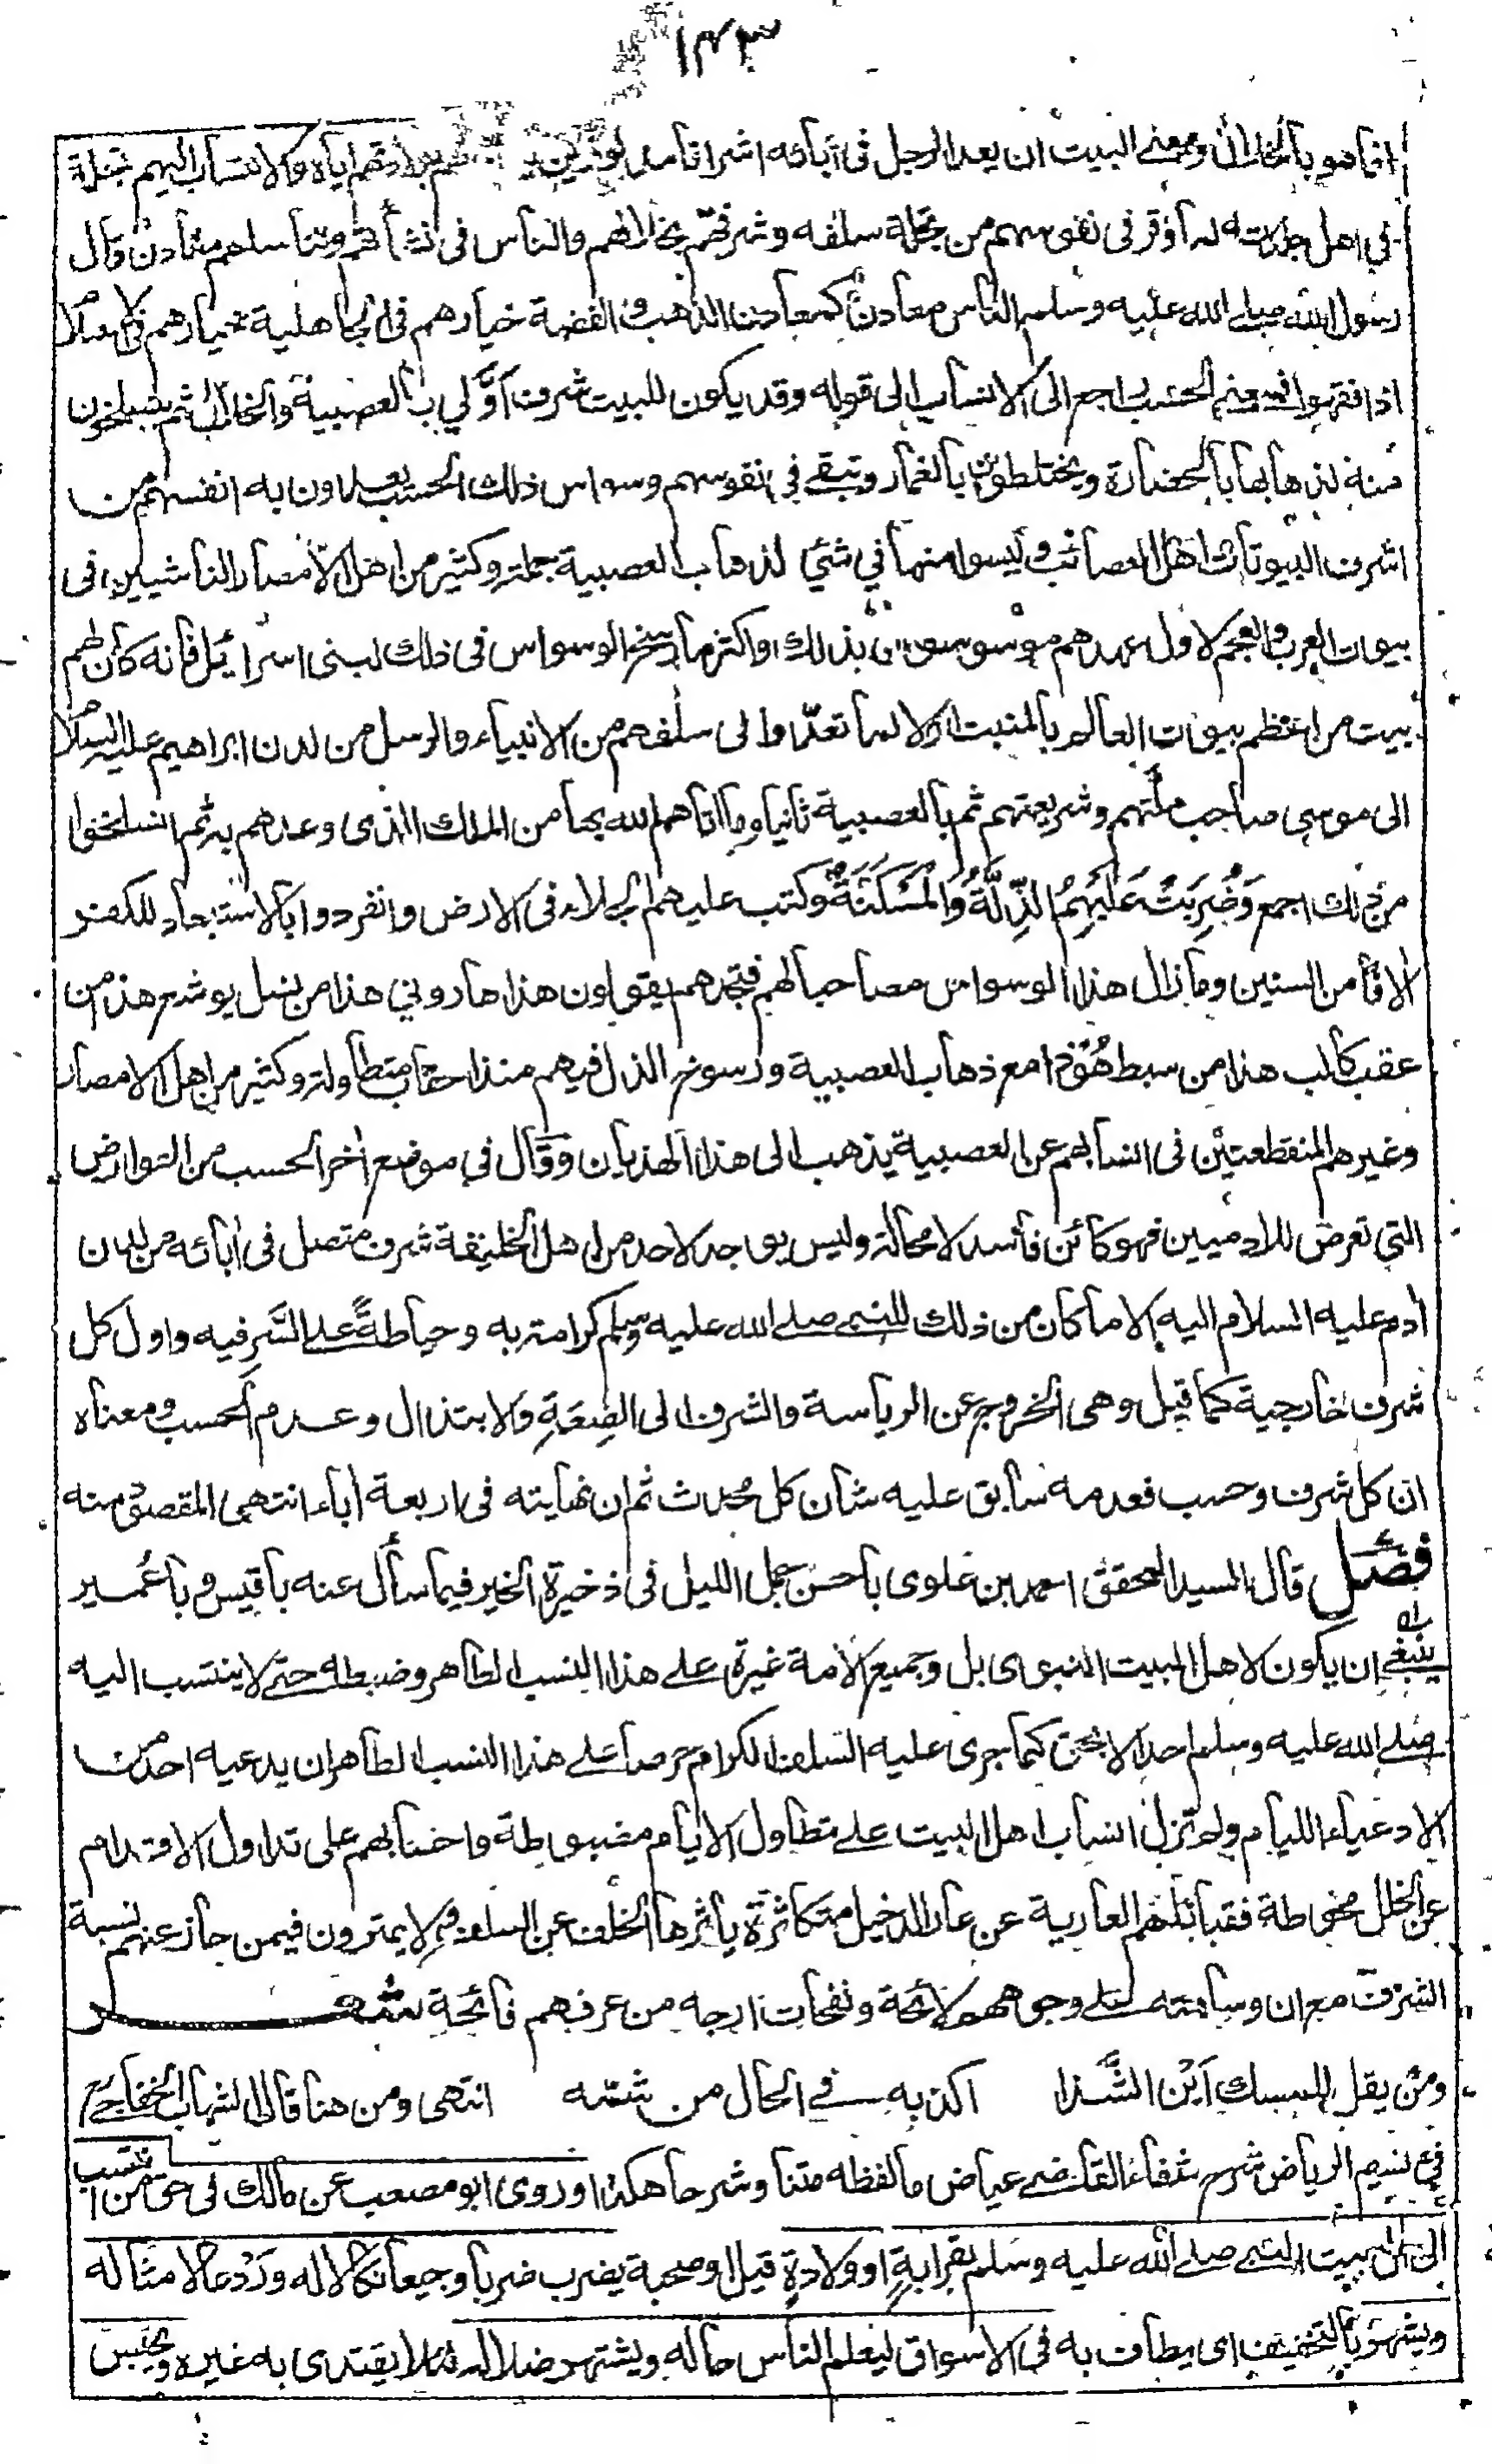 ١٤٣
انما هو بالخلال ومعنى البيت ان يعد الرجل في آبائه اشرافا مذكورين بولادتهم اياه والانتساب اليهم تجلة
في اهل جلدته لما وقر في نفوسهم من تجلة سلفه وشرفهم بخلالهم والناس في نشأتهم وتناسلهم معادن قال
رسول الله صلى الله عليه وسلم الناس معادن كمعادن الذهب والفضة خيارهم في الجاهلية خيارهم في الاسلام
اذا فقهوا فمعنى الحسب راجع الى الانساب الى قوله وقد يكون للبيت شرف اوّلي بالعصبية والخلال ثم ينسلخون
منه لذهابها بالحضارة ويختلطون بالغمار وتبقى في نفوسهم وسواس ذلك الحسب يعدون به انفسهم من
اشرف البيوتات اهل العصائب وليسوا منها في شئ لذهاب العصبية جملة وكثير من اهل الامصار الناشيين في
بيوت العرب والعجم لاول عهدهم موسوسون بذلك واكثر ما رسخ الوسواس في ذلك لبنى اسرائيل فانه كان لهم
بيت من اعظم بيوت العالم بالمنبت اولا لما تعدد الى سلفهم من الانبياء والرسل من لدن ابراهيم عليه السلام
الى موسى صاحب ملتهم وشريعتهم ثم بالعصبية ثانيا وما اتاهم الله بها من الملك الذى وعدهم به ثم انسلخوا
من ذلك اجمع وَضُرِبَتْ عَلَيْهِمُ الذِّلَّةُ وَالْمَسْكَنَةُ وكتب عليهم الجلاء فى الارض وانفردوا بالاستبعاد للكفر
الافا من السنين وما زال هذا الوسواس مصاحبا لهم فتجدهم يقولون هذا هاروني هذا من نسل يوشع هذا من
عقب كالب هذا من سبط هُوْذا مع ذهاب العصبية ورسوخ الذل فيهم منذ احقاب متطاولة وكثير من اهل الامصار
وغيرهم المنقطعين في انسابهم عن العصبية يذهب الى هذا الهذيان وقال في موضع اخر الحسب من العوارض
التي تعرض للادميين فهو كائن فاسد لا محالة وليس يوجد لاحد من اهل الخليقة شرف متصل في ابائه من لدن
ادم عليه السلام اليه الا ما كان من ذلك للنبى صلى الله عليه وسلم كرامة به وحياطةً على السّر فيه واول كل
شرف خارجية كما قيل وهى الخروج عن الرياسة والشرف الى الضِعَةِ والابتذال وعدم الحسب ومعناه
ان كل شرف وحسب فعدمه سابق عليه شان كل محدث ثم ان نهايته في اربعة اباء انتهى المقصود منه
فصل قال السيد المحقق احمد بن علوى باحسن جمل الليل فى ذخيرة الخير فيما سأل عنه باقيس وباعُمير
انه ينبغي ان يكون لاهل البيت النبوى بل وجميع الامة غيرة على هذا النسب الطاهر وضبطه حتى لا ينتسب اليه
صلى الله عليه وسلم احد الا بحق كما جرى عليه السلف الكرام حرصا على هذا النسب الطاهر ان يدعيه احد من
الادعياء الليام ولم تزل انساب اهل البيت على تطاول الايام مضبوطة واحسابهم على تداول الاقدام
عن الخلل محوطة فقبائلهم العارية عن عار الدخيل متكاثرة ياثرها الخلف عن السلف فهم لا يمترون فيمن حاز عنهم نسبة
الشرف مع ان وسامته على وجوههم لائحة ونفحات ارجه من عرفهم فائحة شعر
ومن يقل للمسك اَيْن الشَّذا اكذبه في الحال من شمّه انتهى ومن هنا قال الشهاب الخفاجي
في نسيم الرياض شرح شفاء القاضى عياض ما لفظه متنا وشرحا هكذا وروى ابو مصعب عن مالك في حق من انتسب
الى اهل بيت النبى صلى الله عليه وسلم بقرابةٍ او ولادةٍ قيل او صحبة يضرب ضربا وجيعا نكالا له ورَدْعا لامثاله
ويشهر بالتخفيف اى يطاف به في الاسواق ليعلم الناس حاله ويشتهر ضلاله لئلا يقتدى به غيره ويحبس